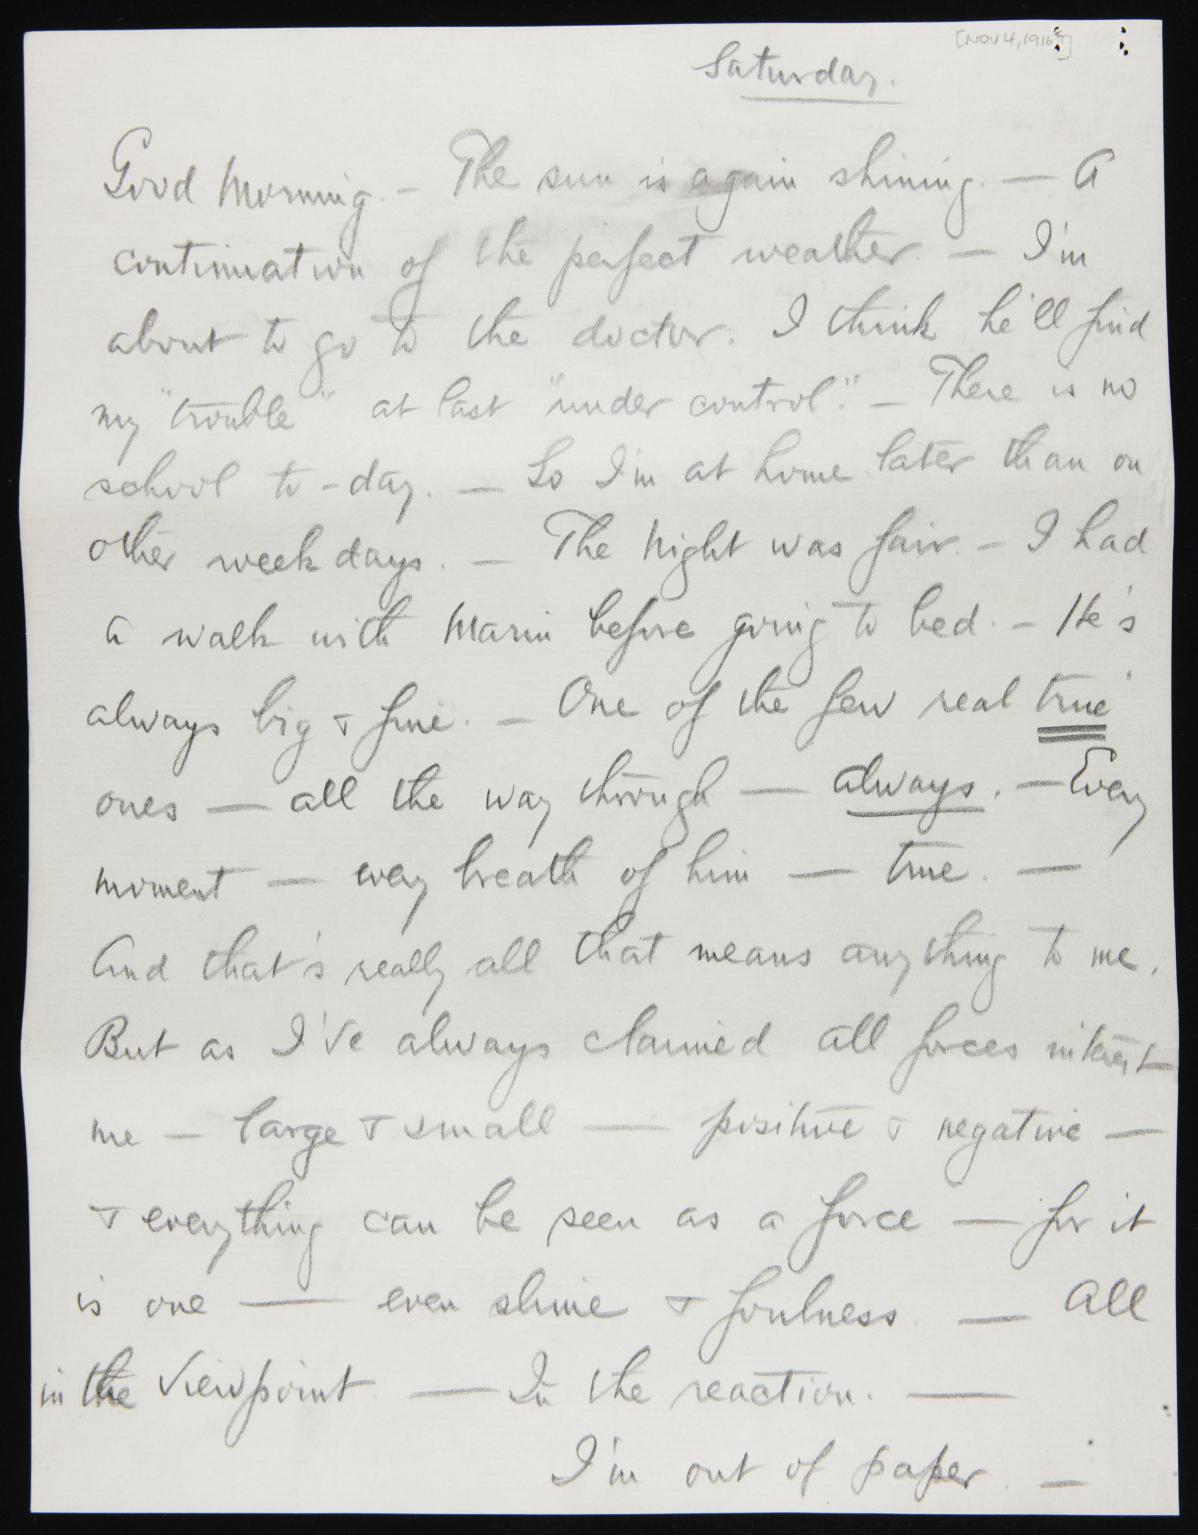 [NOV 4, 1916?]
Saturday.
Good Morning. – The sun is again shining. — A
continuation of the perfect weather. — I'm
about to go to the doctor. I think he'll find
my "trouble" at last "under control". — There is no
school to-day. — So I'm at home later than on
other week days. — The Night was fair. – I had
a walk with Marin before going to bed. – He's
always big & fine. — One of the few real true
ones — all the way through — always. — Every
moment — every breath of him — true. —
And that's really all that means anything to me.
But as I've always claimed all forces interest
me — large & small — positive & negative —
& everything can be seen as a force — for it
is one — even slime & foulness. — All
in the Viewpoint — In the reaction. —
I'm out of paper —